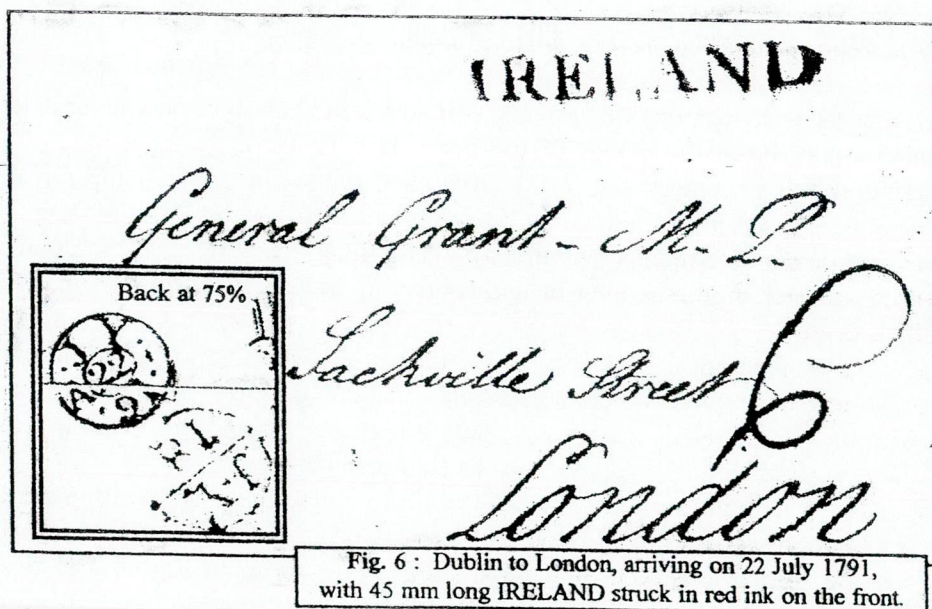 IRELAND
General Grant - M. P.
Sackville Street
London
Back at 75%
Fig. 6 : Dublin to London, arriving on 22 July 1791,
with 45 mm long IRELAND struck in red ink on the front.